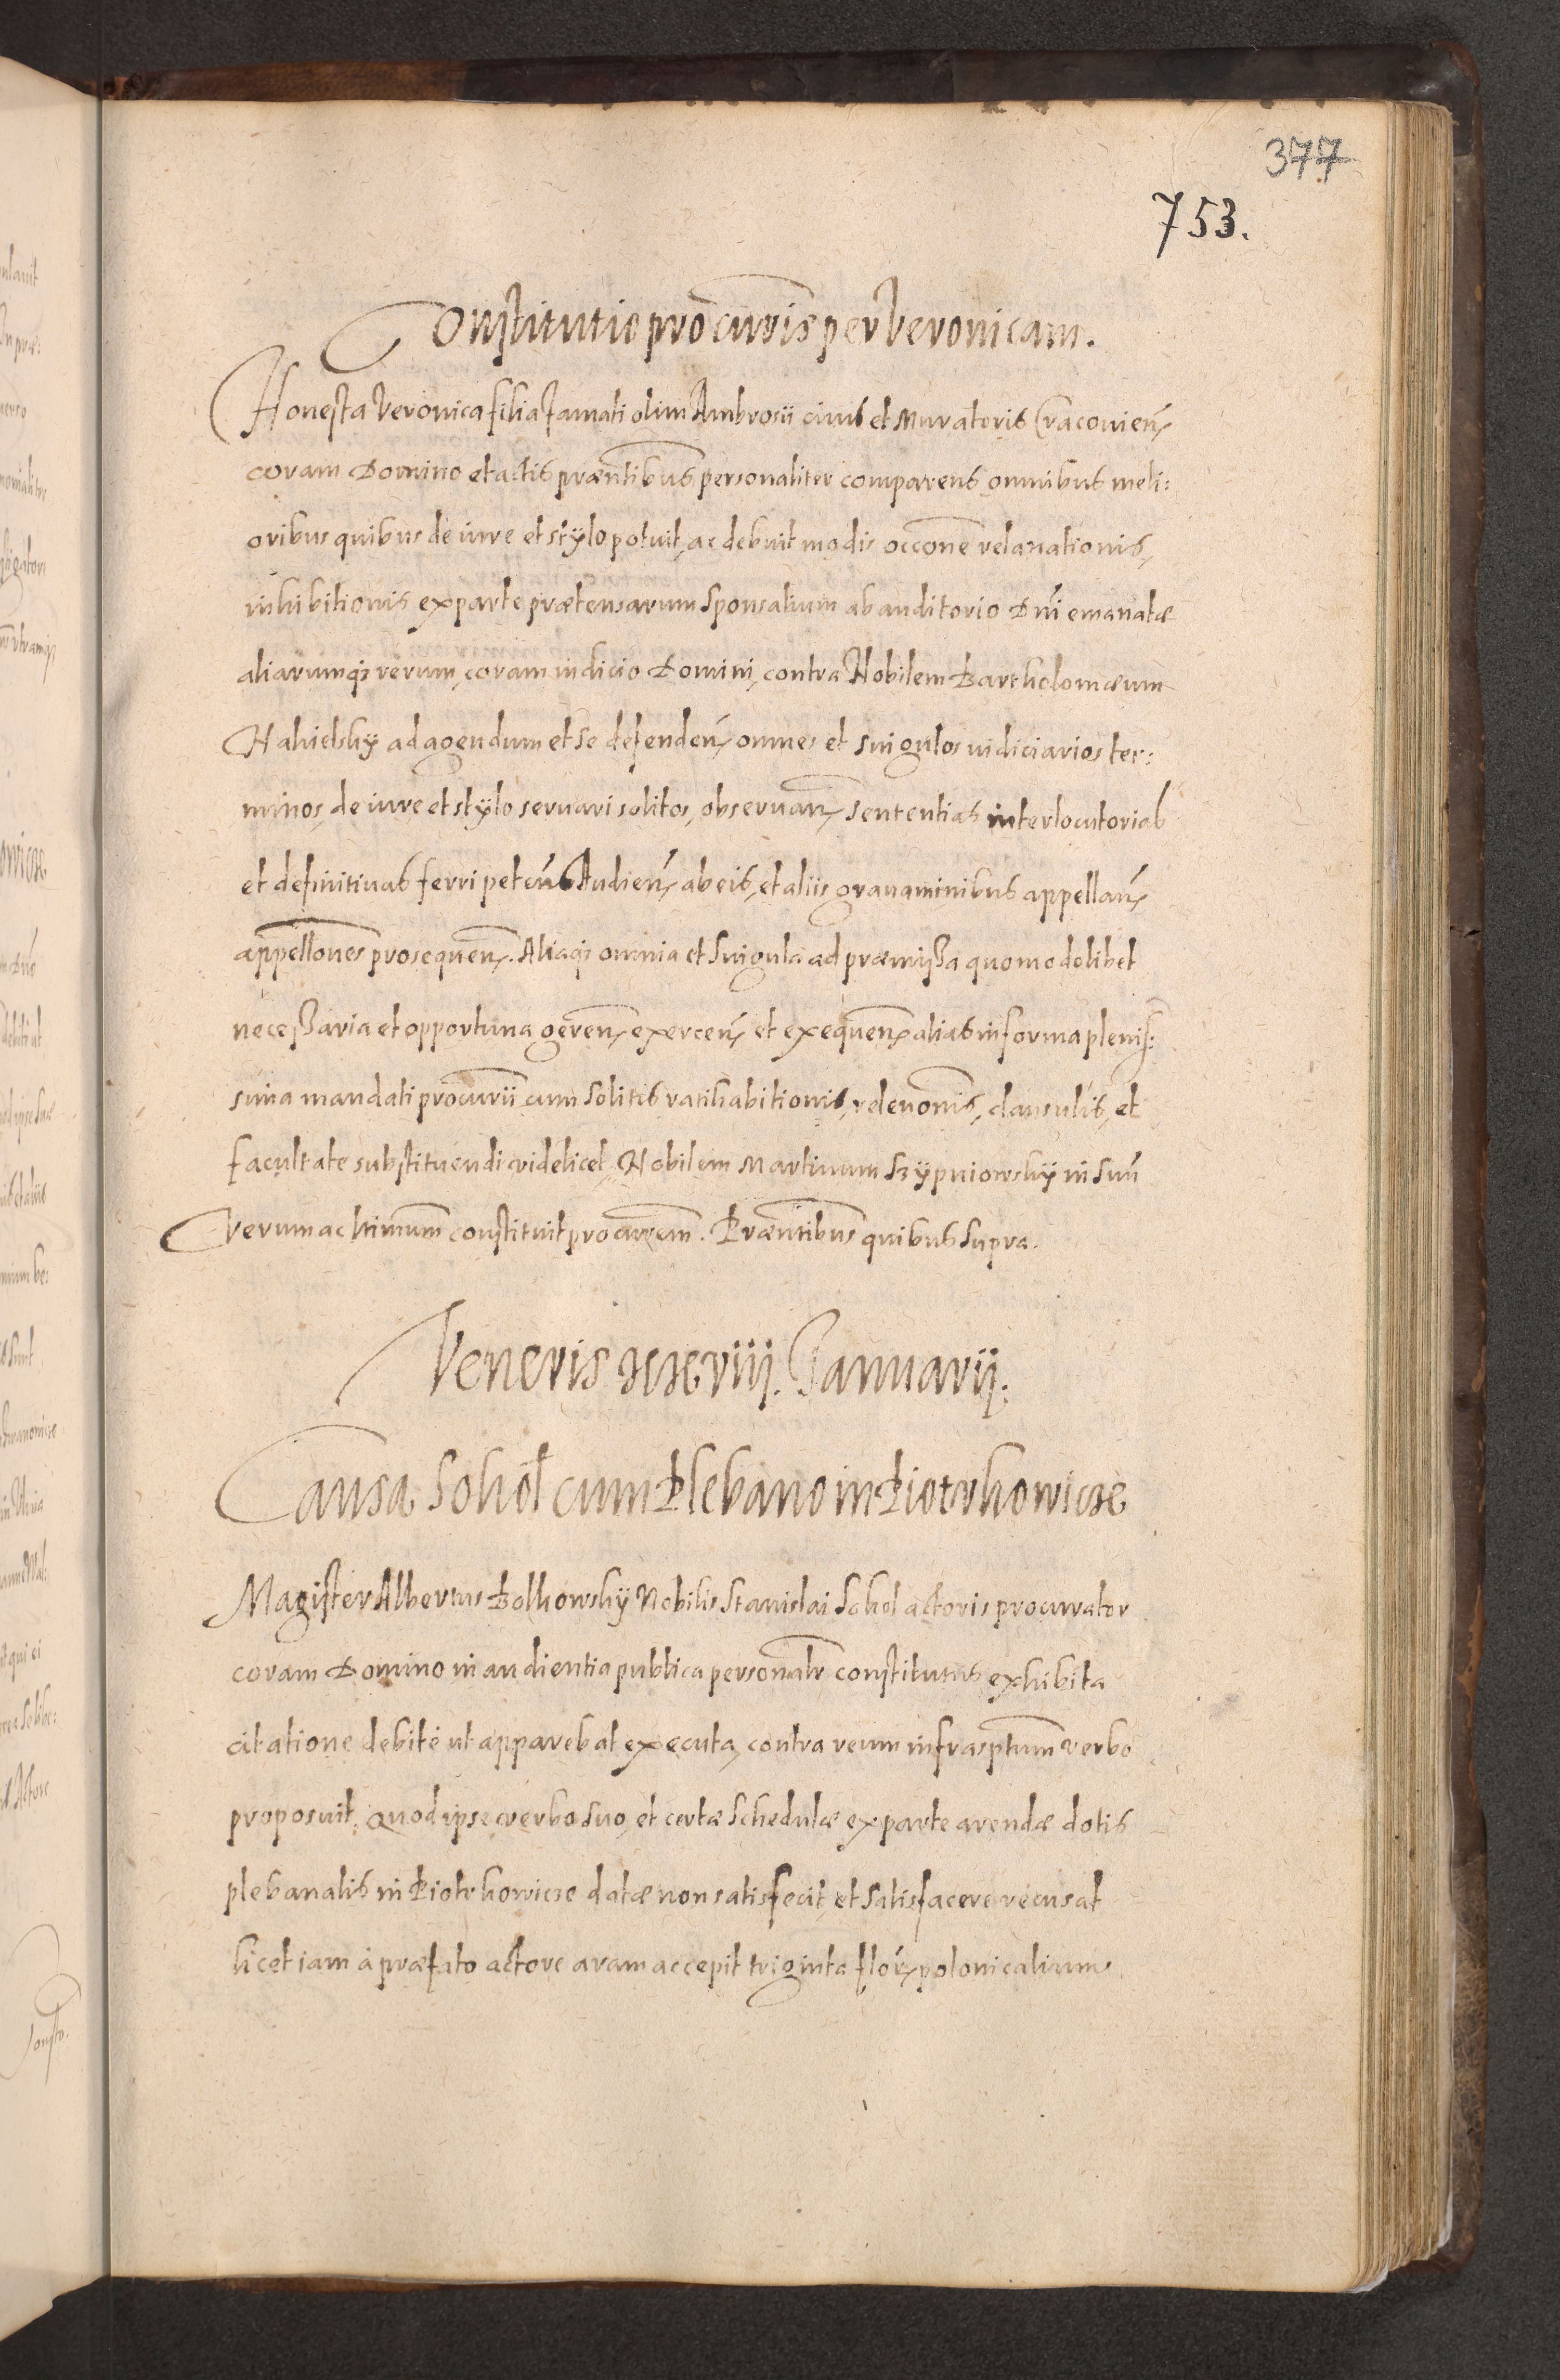 377
753.
Constitutio procuris per Veronicam.
Honesta Veronica filia famati olim Ambrosii civis et Muratoris Cracovien
coram Domino et actis præntibus personaliter comparens omnibus meli:
oribus quibus de iure et stylo potuit, ac debuit modis occone relaxationis,
inhibitionis ex parte prætensarum sponsalium ab auditorio Dni emanatæ
aliarumq; rerum, coram iudicio Domini, contra Nobilem Bartholomæum
ad agendum et se defenden, omnes et singulos iudiciarios ter:
minos, de iure et stylo servari solitos, observan, sententias interlocutorias
et definitivas ferri peten Audien, ab eis, et aliis gravaminibus appellan,
appellones prosequen. Aliaq; omnia et singula ad præmissa quomodolibet
necessaria et opportuna geren, exercen, et exequen, alias in forma plenis:
sima mandati procurii cum solitis ratihabitionis, relevonis, clausulis, et
facultate substituendi videlicet Nobilem Martinum Szypniowsky in suu
verum ac ltimum constituit procurem. Præntibus quibus supra.
Veneris xxviij. Januarij.
Causa Sokol cum Plebano in Piotrkowicze
Magister Albertus Bolkowsky Nobilis Stanislai Sokol actoris procurator
coram Domino in audientia publica personalr constitutus exhibita
citatione debitè ut apparebat executa, contra reum infrasptum verbo
proposuit, Quod ipse verbo suo, et certæ schedulæ ex parte arendæ dotis
plebanalis in Piotrkowicze datæ non satisfecit, et satisfacere recusat
licet iam à præfato actore aram accepit triginta flor, polonicalium